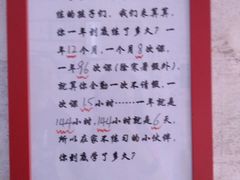 练的孩子们，我们来算算，
你一年到底练了多久？一
年12个月，一个月8次课，
一年96次课（除寒暑假外），
就算你全勤一次不请假，
一次课1.5小时……一年就是
144小时，144小时就是6天，
所以在家不练习的小伙伴，
你到底学了多久？